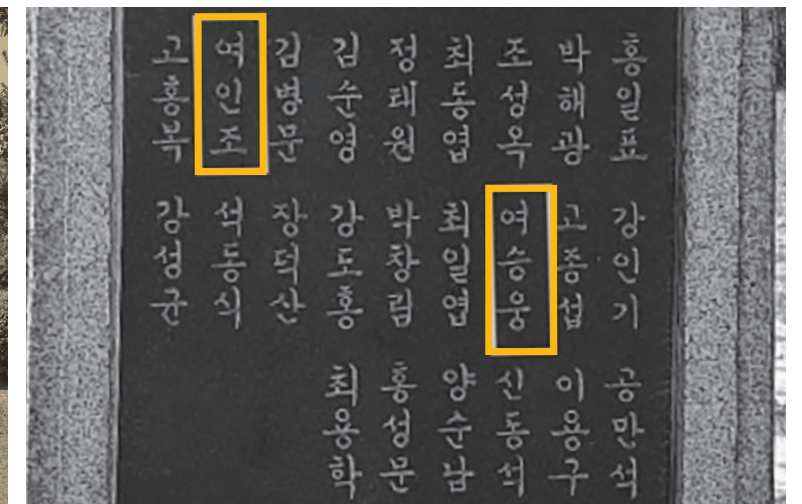 홍일표
박해광
조성옥
최동엽
정태원
김순영
김병문
여인조
강인기
고종섭
여승웅
최일엽
박창림
강도홍
장덕산
석동식
공만석
이용구
신동석
양순남
홍성문
최용학